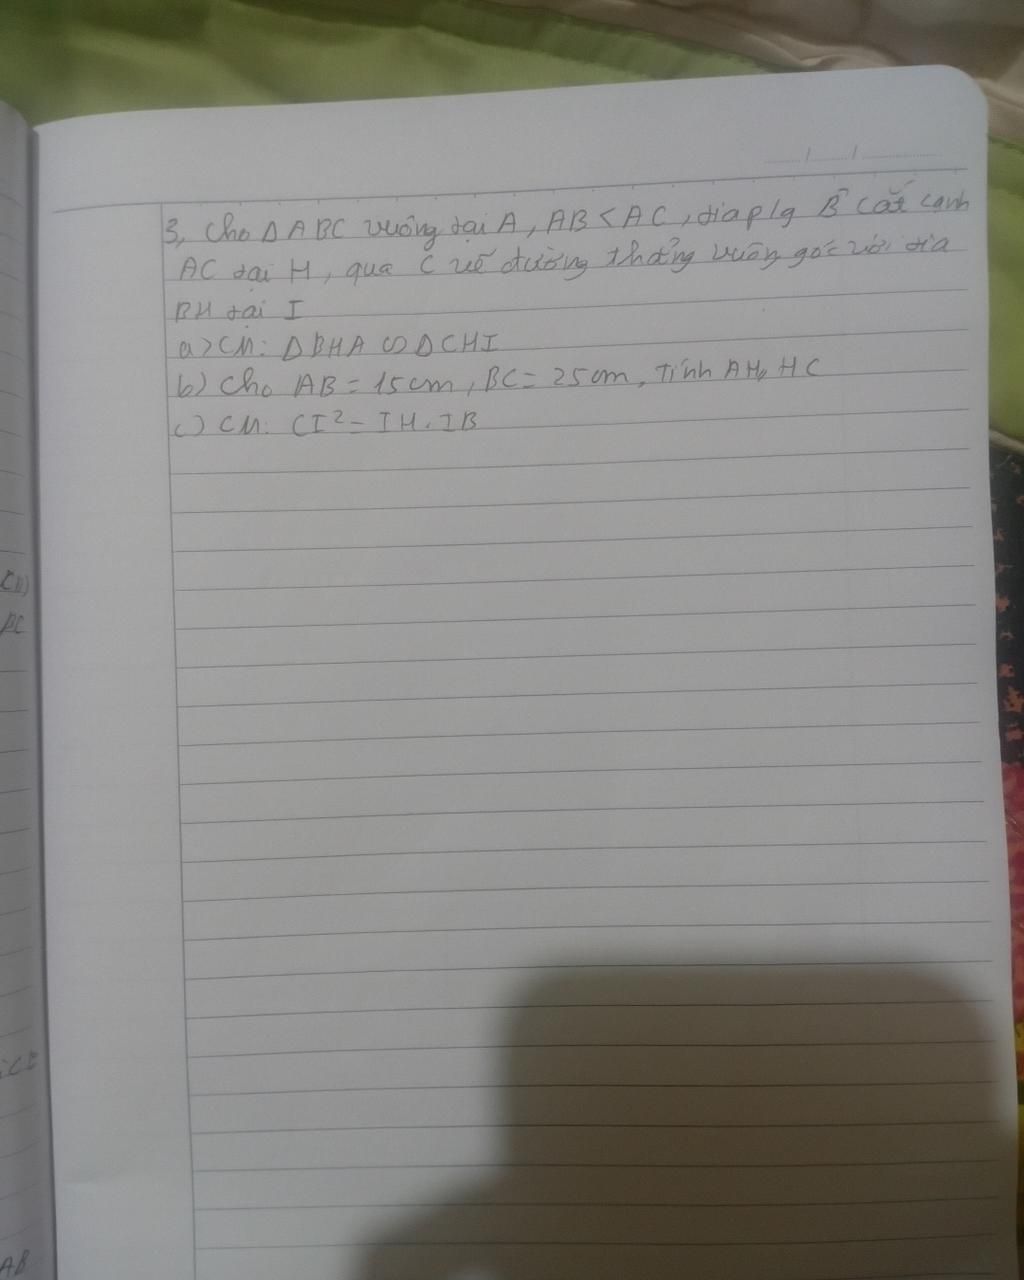 3, Cho Δ ABC vuông tại A, AB < AC, tia p/g B̂ cắt cạnh
AC tại H, qua C vẽ đường thẳng vuông góc với tia
BH tại I
a> CM: Δ BHA ∽ Δ CHI
b) Cho AB = 15 cm, BC = 25 cm, Tính AH, HC
c) CM: CI² = IH. IB
BC
CE
AB